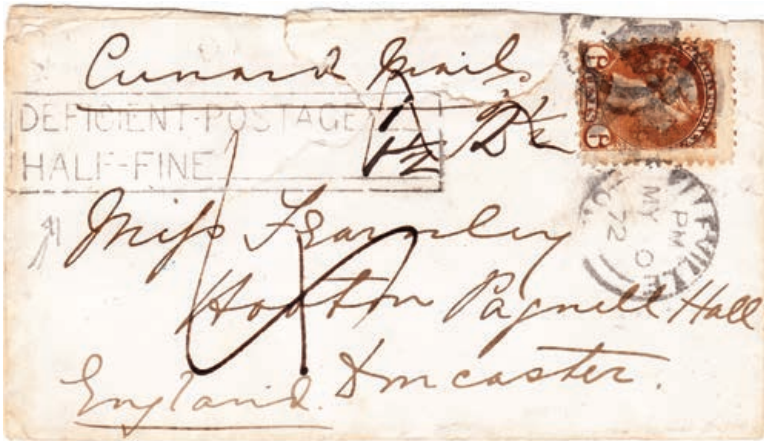 Cunard Mail
DEFICIENT-POSTAGE
HALF-FINE
1½
6 6
VILLE
PM
MY 0
72
Miss Fearnley
Hooton Pagnell Hall
Doncaster.
England.
4